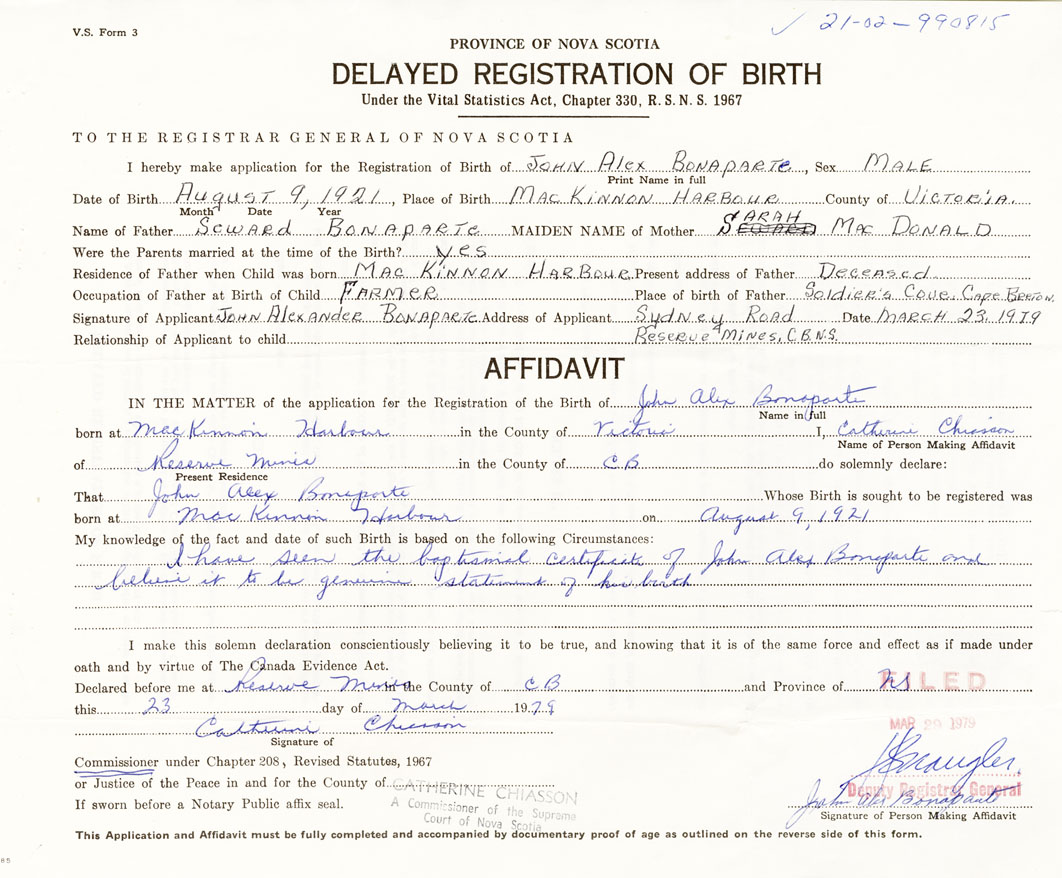 V.S. Form 3
✓ 21-02-990815
PROVINCE OF NOVA SCOTIA
DELAYED REGISTRATION OF BIRTH
Under the Vital Statistics Act, Chapter 330, R.S.N.S. 1967
TO THE REGISTRAR GENERAL OF NOVA SCOTIA
I hereby make application for the Registration of Birth of JOHN Alex BONAPARTE, Sex MALE
Print Name in full
Date of Birth August 9, 1921, Place of Birth MAC KINNON HARBOUR County of VICTORIA.
Month Date Year
Name of Father Seward BONAPARTE MAIDEN NAME of Mother SARAH MAC DONALD
Were the Parents married at the time of the Birth? yes
Residence of Father when Child was born MAC KINNON HARBOUR Present address of Father DECEASED
Occupation of Father at Birth of Child FARMER Place of birth of Father SOLDIER'S COVE, CAPE BRETON
Signature of Applicant JOHN Alexander BONAPARTE Address of Applicant Sydney ROAD Date MARCH 23, 1979
Relationship of Applicant to child RESERVE MINES, C.B.N.S.
AFFIDAVIT
IN THE MATTER of the application for the Registration of the Birth of John Alex Bonaparte
Name in full
born at MacKinnon Harbour in the County of Victoria I, Catherine Chiasson
Name of Person Making Affidavit
of Reserve Mines in the County of CB do solemnly declare:
Present Residence
That John Alex Bonaparte Whose Birth is sought to be registered was
born at MacKinnon Harbour on August 9, 1921
My knowledge of the fact and date of such Birth is based on the following Circumstances:
I have seen the baptismal certificate of John Alex Bonaparte and
believe it to be genuine statement of his birth
I make this solemn declaration conscientiously believing it to be true, and knowing that it is of the same force and effect as if made under
oath and by virtue of The Canada Evidence Act.
Declared before me at Reserve Mines in the County of CB and Province of NS FILED
this 23 day of March 1979
MAR 29 1979
Catherine Chiasson
Signature of
Commissioner under Chapter 208, Revised Statutes, 1967
or Justice of the Peace in and for the County of CATHERINE CHIASSON
Deputy Registrar General
If sworn before a Notary Public affix seal. A Commissioner of the Supreme John Alex Bonaparte
Court of Nova Scotia Signature of Person Making Affidavit
This Application and Affidavit must be fully completed and accompanied by documentary proof of age as outlined on the reverse side of this form.